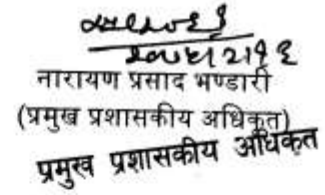 नारायण प्रसाद भण्डारी
(प्रमुख प्रशासकीय अधिकृत)
प्रमुख प्रशासकीय अधिकृत